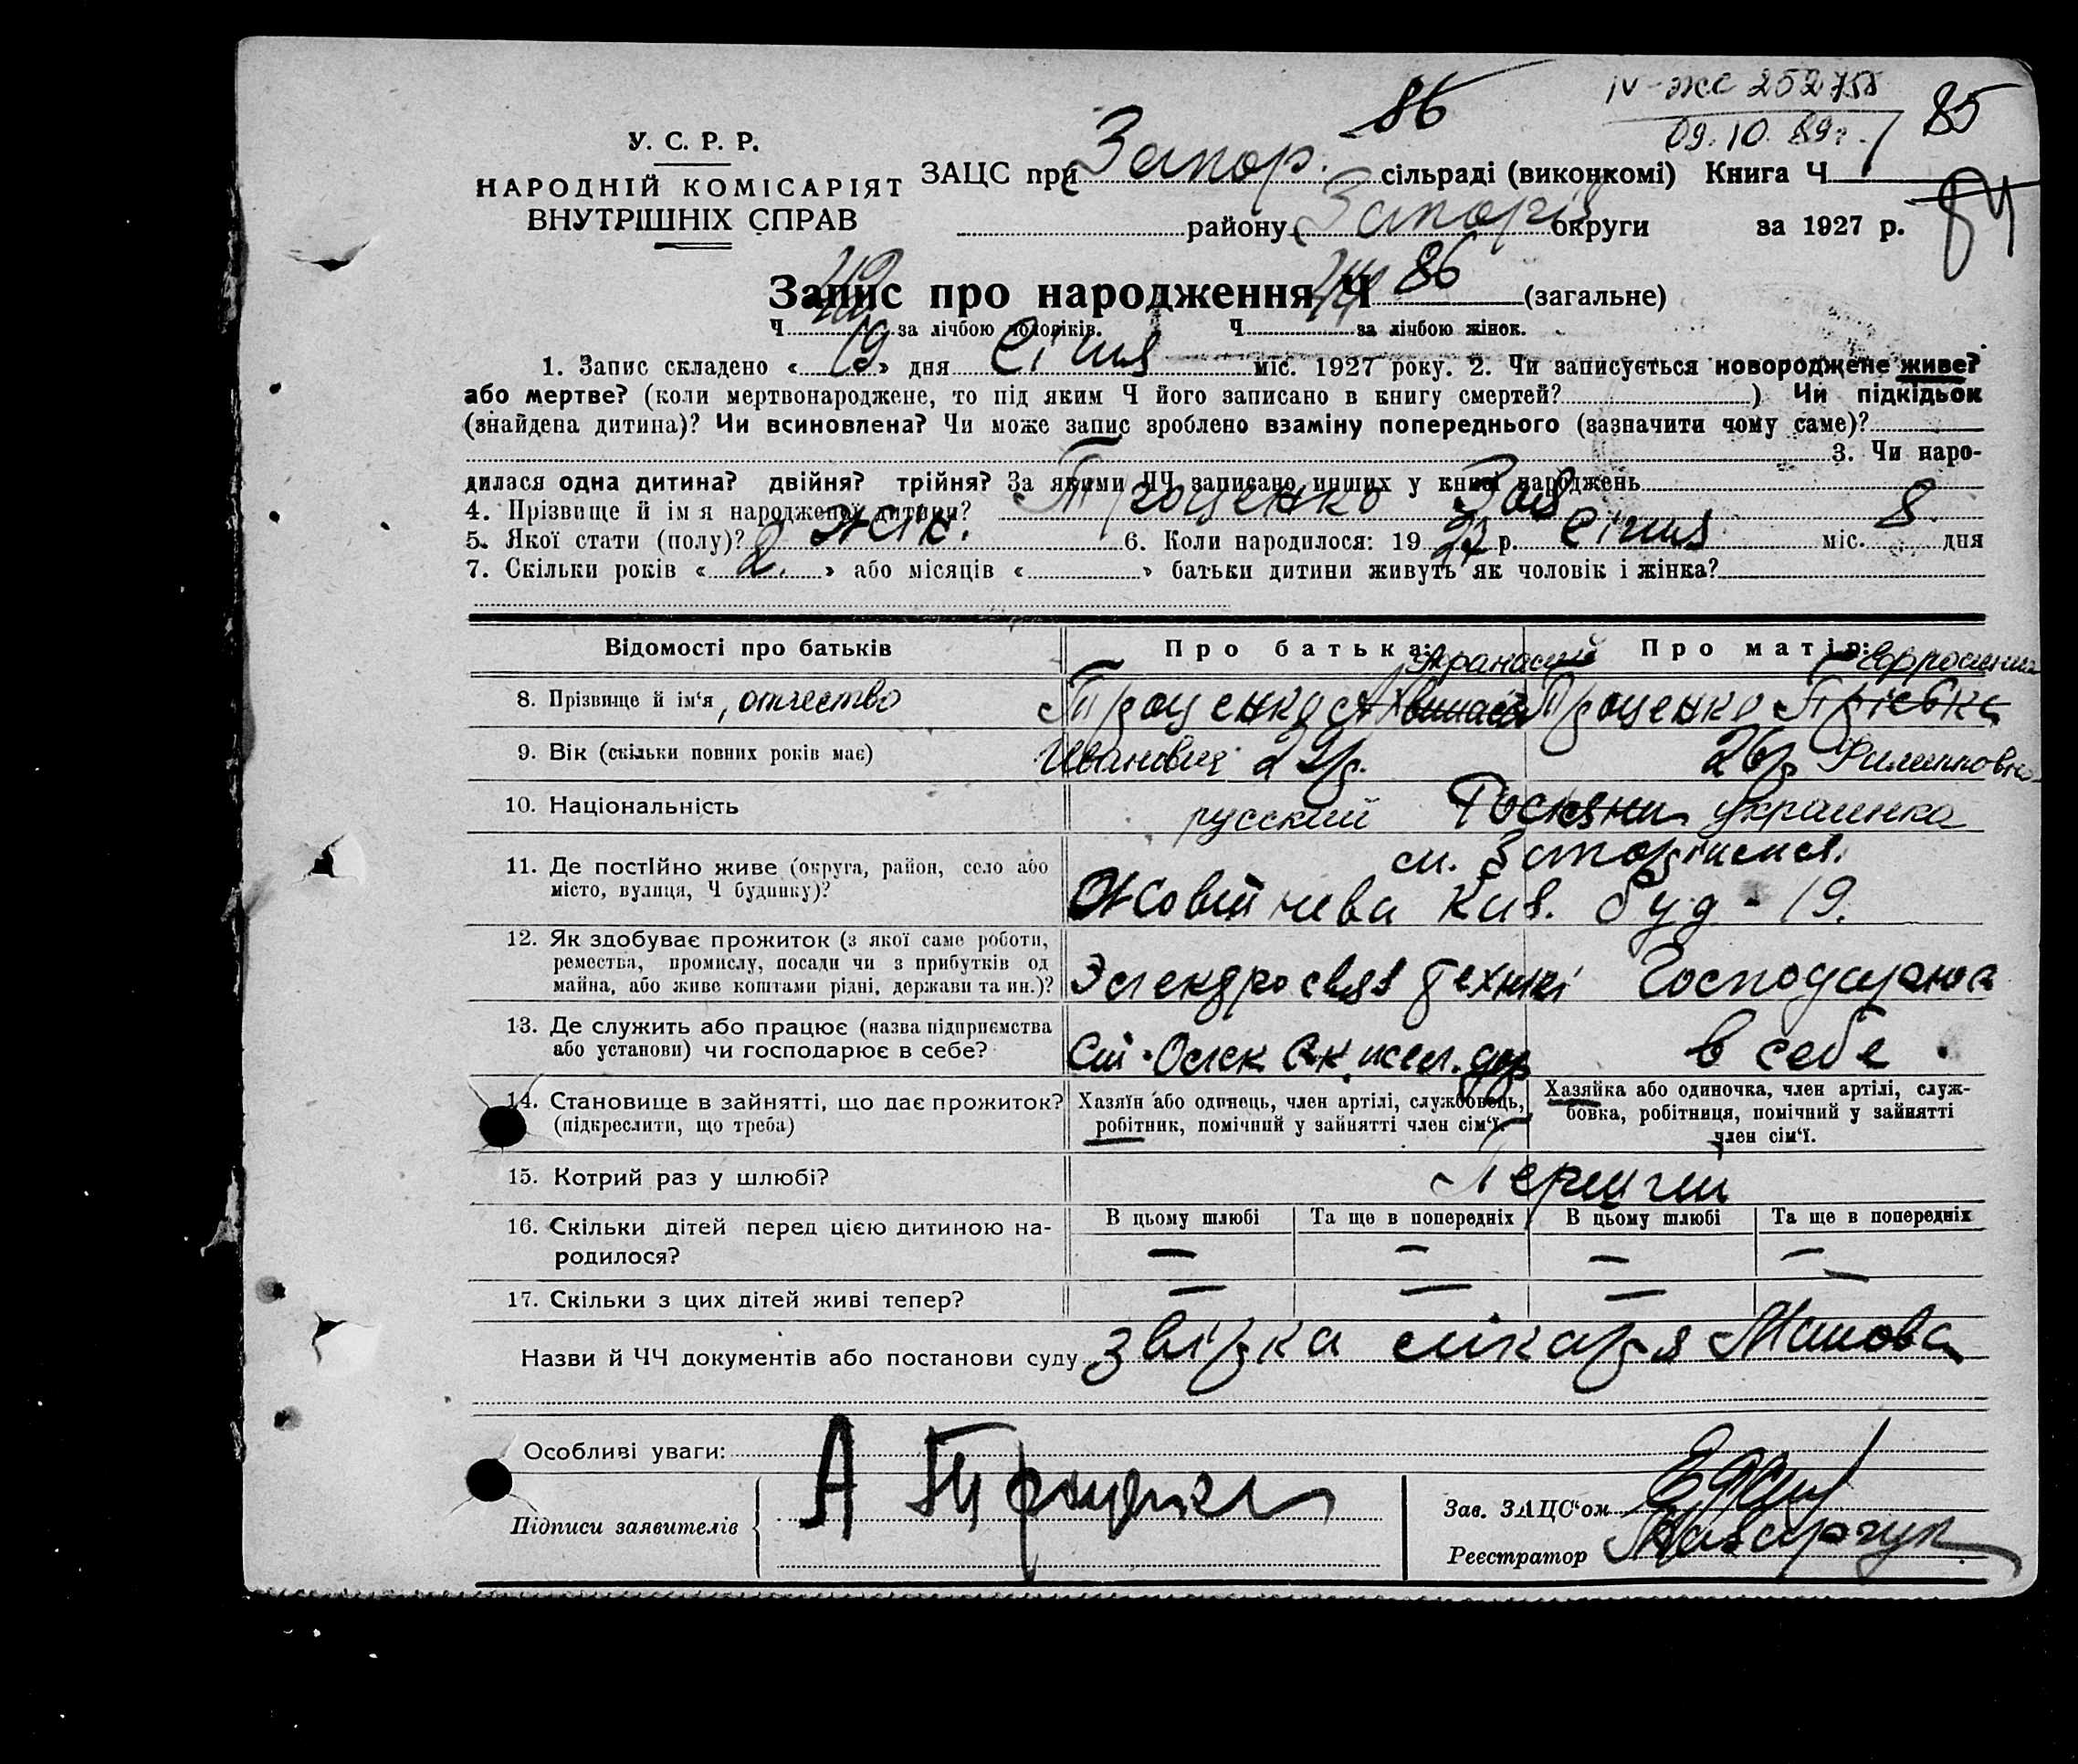 IV-ЖС 252758
09.10.89г.
86
85
84
У. С. Р. Р.
НАРОДНІЙ КОМІСАРІЯТ
ВНУТРІШНІХ СПРАВ
ЗАЦС при Запор. сільраді (виконкомі) Книга Ч
району Запорі округи за 1927 р.
Запис про народження Ч 86 (загальне)
Ч за лічбою чоловіків. Ч 44 за лічбою жінок.
1. Запис складено « 19 » дня Січня міс. 1927 року. 2. Чи записується новороджене живе?
або мертве? (коли мертвонароджене, то під яким Ч його записано в книгу смертей? ) Чи підкідьок
(знайдена дитина)? Чи всиновлена? Чи може запис зроблено взаміну попереднього (зазначити чому саме)?
3. Чи наро-
дилася одна дитина? двійня? трійня? За якими ЧЧ записано инших у книзі народжень
4. Прізвище й ім'я народженої дитини? Троценко Зоя
5. Якої стати (полу)? жін. 6. Коли народилося: 19 27 р. Січня міс. 8 дня
7. Скільки років « 2. » або місяців « » батьки дитини живуть як чоловік і жінка?
Відомості про батьків Про батька: Про матір:
Афанасий Ефросиния
8. Прізвище й ім'я, отчество Троценко Троценко
9. Вік (скільки повних років має) Иванович 29р. 26р. Филипповна
10. Національність русский Росіяни Украинка
11. Де постійно живе (округа, район, село або місто, вулиця, Ч будинку)?
м. Запоріжжя.
Жовтнева Кив. буд - 19.
12. Як здобуває прожиток (з якої саме роботи, ремества, промислу, посади чи з прибутків од майна, або живе коштами рідні, держави та ин.)? техник Господарюа
13. Де служить або працює (назва підприємства або установи) чи господарює в себе? в себе
14. Становище в зайнятті, що дає прожиток? (підкреслити, що треба)
Хазяїн або одинець, член артілі, службовець, робітник, помічний у зайнятті член сім'ї.
Хазяйка або одиночка, член артілі, служ-
бовка, робітниця, помічний у зайнятті
член сім'ї.
15. Котрий раз у шлюбі? Перший
16. Скільки дітей перед цією дитиною на-
родилося?
В цьому шлюбі Та ще в попередніх В цьому шлюбі Та ще в попередніх
— — — —
17. Скільки з цих дітей живі тепер? — — — —
Назви й ЧЧ документів або постанови суду лікаря
Особливі уваги:
Підписи заявителів А Троценко
Зав. ЗАЦС'ом
Реєстратор